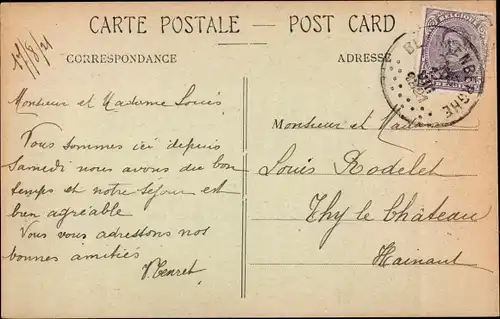 CARTE POSTALE — POST CARD
CORRESPONDANCE
ADRESSE
17/8/21
BELGIQUE
BLANKENBERGHE
Monsieur et Madame Louis
Vous sommes ici depuis
Samedi nous avons du bon
temps et notre séjour est
bien agréable
Vous vous adressons nos
bonnes amitiés
Monsieur et Madame
Louis Rodelet
Thy le Château
Hainaut